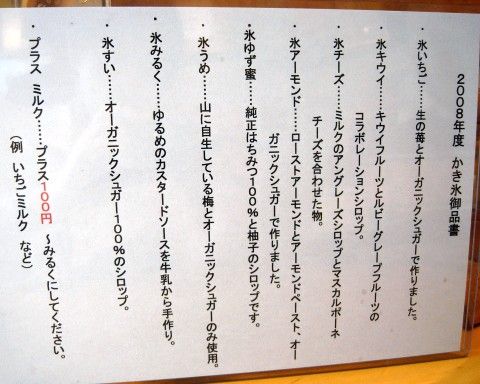 2008年度 かき氷御品書
・氷いちご……生の苺とオーガニックシュガーで作りました。
・氷キウイ……キウイフルーツとルビーグレープフルーツの
コラボレーションシロップ。
・氷チーズ……ミルクのアングレーズシロップとマスカルポーネ
チーズを合わせた物。
・氷アーモンド……ローストアーモンドとアーモンドペースト、オー
ガニックシュガーで作りました。
・氷ゆず蜜……純正はちみつ100%と柚子のシロップです。
・氷うめ……山に自生している梅とオーガニックシュガーのみ使用。
・氷みるく……ゆるめのカスタードソースを牛乳から手作り。
・氷すい……オーガニックシュガー100%のシロップ。
・プラス ミルク……プラス100円 ～みるくにしてください。
(例 いちごミルク など)